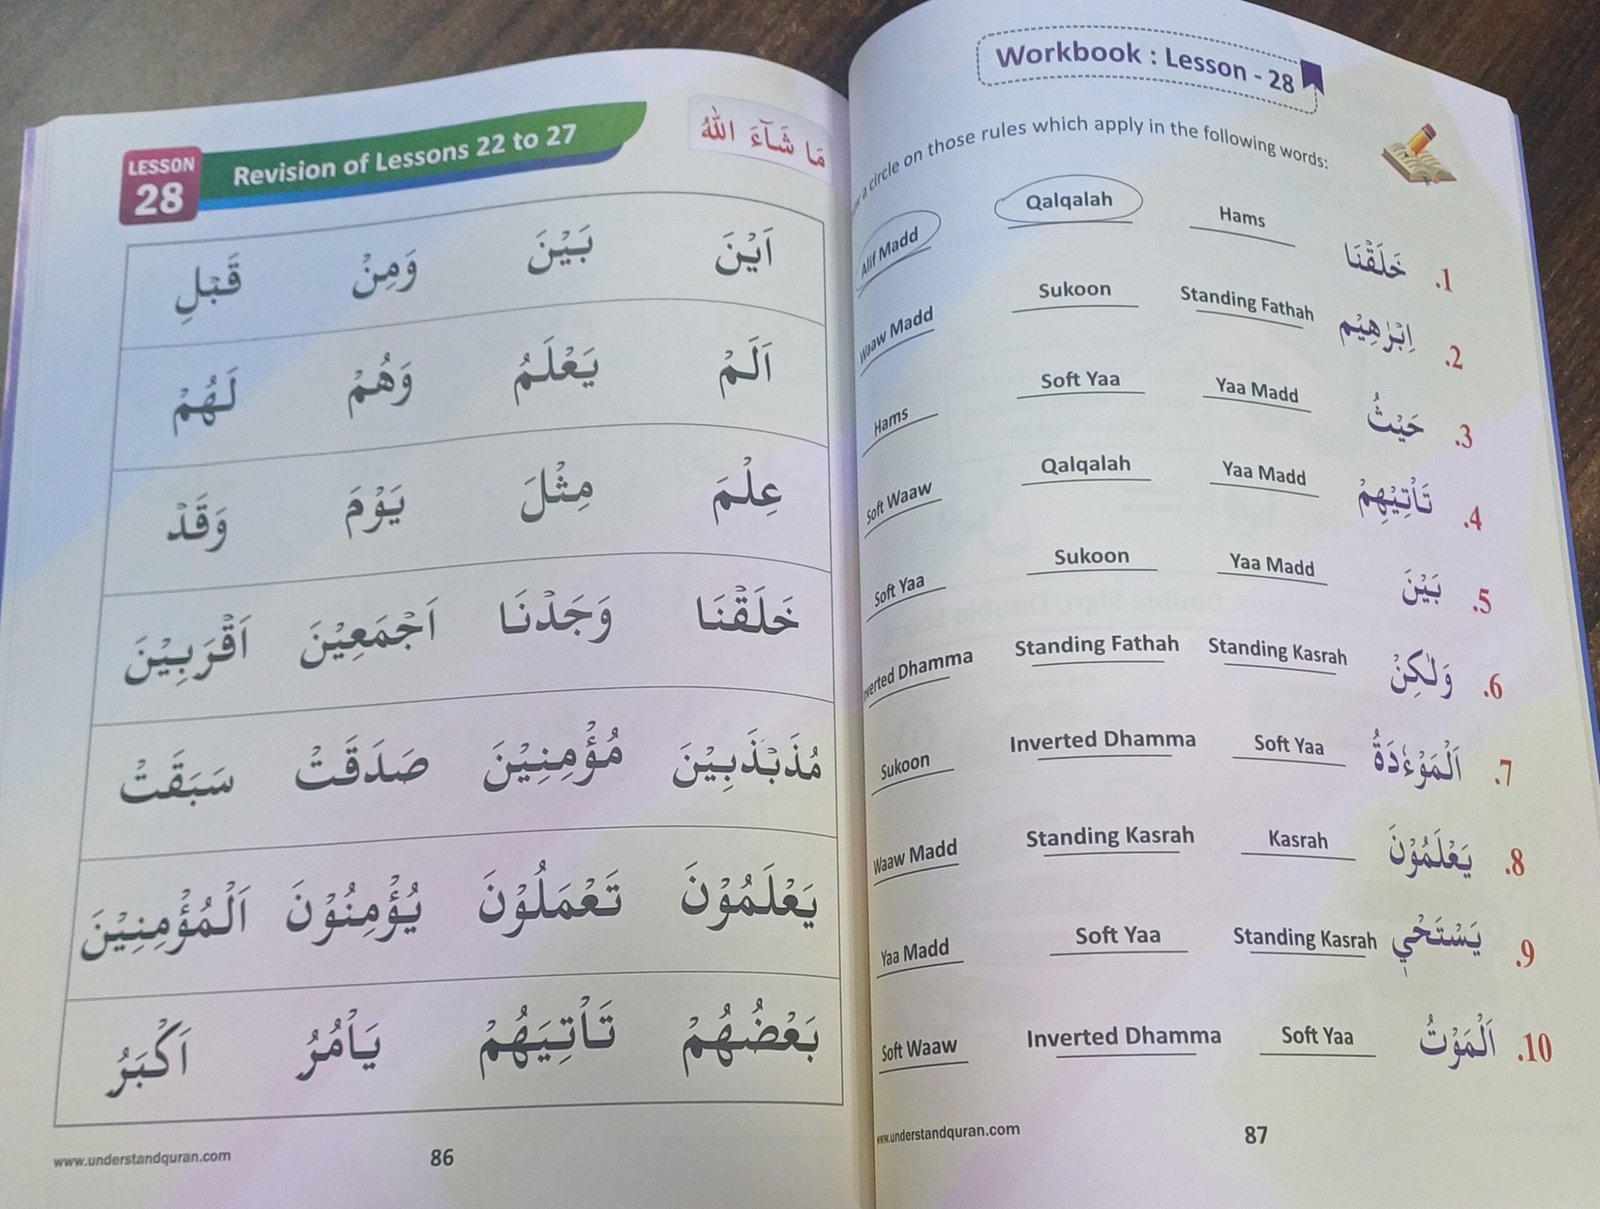 LESSON
28
Revision of Lessons 22 to 27
مَا شَآءَ اللّٰهُ
اَيْنَ بَيْنَ وَمِنْ قَبْلِ
اَلَمْ يَعْلَمُ وَهُمْ لَهُمْ
عِلْمَ مِثْلَ يَوْمَ وَقَدْ
خَلَقْنَا وَجَدْنَا اَجْمَعِيْنَ اَقْرَبِيْنَ
مُذَبْذَبِيْنَ مُؤْمِنِيْنَ صَدَقَتْ سَبَقَتْ
يَعْلَمُوْنَ تَعْمَلُوْنَ يُؤْمِنُوْنَ اَلْمُؤْمِنِيْنَ
بَعْضُهُمْ تَأْتِيَهُمْ يَاْمُرُ اَكْبَرُ
www.understandquran.com 86
Workbook : Lesson - 28
a circle on those rules which apply in the following words:
1. خَلَقْنَا Hams Qalqalah Alif Madd
2. اِبْرٰهِيْم Standing Fathah Sukoon Waaw Madd
3. حَيْثُ Yaa Madd Soft Yaa Hams
4. تَأْتِيْهِمْ Yaa Madd Qalqalah Soft Waaw
5. بَيْنَ Yaa Madd Sukoon Soft Yaa
6. وَلٰكِنْ Standing Kasrah Standing Fathah Inverted Dhamma
7. اَلْمَوْءٗدَةُ Soft Yaa Inverted Dhamma Sukoon
8. يَعْلَمُوْنَ Kasrah Standing Kasrah Waaw Madd
9. يَسْتَحْيٖ Standing Kasrah Soft Yaa Yaa Madd
10. اَلْمَوْتُ Soft Yaa Inverted Dhamma Soft Waaw
www.understandquran.com 87